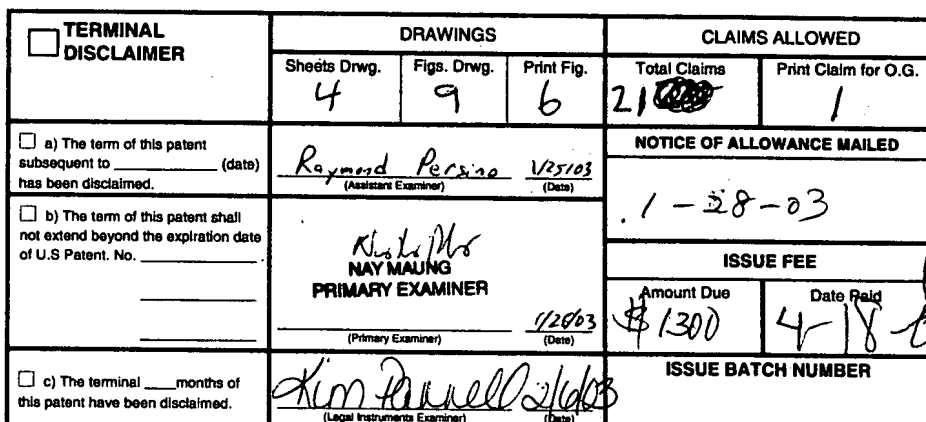 TERMINAL
DISCLAIMER
DRAWINGS
CLAIMS ALLOWED
Sheets Drwg.
Figs. Drwg.
Print Fig.
Total Claims
Print Claim for O.G.
4
9
6
21
1
a) The term of this patent
subsequent to ________ (date)
has been disclaimed.
Raymond Persino 1/25/03
(Assistant Examiner) (Date)
NOTICE OF ALLOWANCE MAILED
1-28-03
b) The term of this patent shall
not extend beyond the expiration date
of U.S Patent. No. ________
NAY MAUNG
PRIMARY EXAMINER
(Primary Examiner) (Date)
ISSUE FEE
Amount Due
Date Paid
$1300
4-18-
c) The terminal ____months of
this patent have been disclaimed.
Kim Pannell 2/6/03
(Legal Instruments Examiner) (Date)
ISSUE BATCH NUMBER